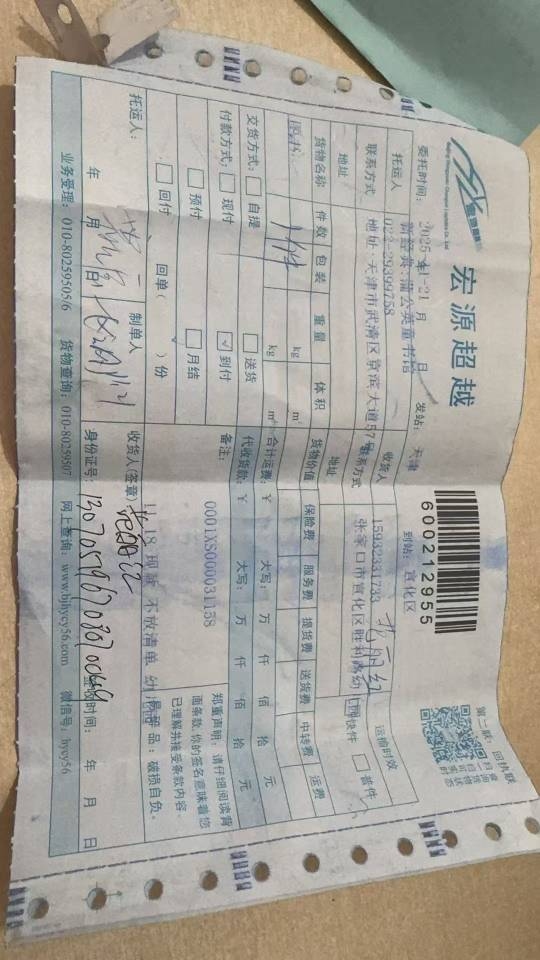 宏源超越
600212955
第二联 回执联
委托时间: 2025年1-21月 日 发站: 天津 到站: 宣化区
托运人 新经典:蒲公英童书馆 收货人
联系方式 022-29399758 联系方式 15932331733
地址 地址:天津市武清区京滨大道57号 地址 张家口市宣化区胜利路幼
运输时效
快件 普件
货物名称 件数 包装 重量 体积 货物价值 保险费 服务费 提货费 送货费 中转费 运费
图书 1件 kg m³
kg m³ 合计运费:¥ 大写: 万 仟 佰 拾 元
交货方式: 自提 送货 代收货款:¥ 大写: 万 仟 佰 拾 元
付款方式: 现付 到付 备注: 0001XS000031158
预付 月结
回付 回单( )份
郑重声明:请仔细阅读背
面条款,你的签名意味着您
已理解并接受条款内容
易碎品:破损自负.
托运人: 制单人 收货人(签章):
年 月 日 身份证号: 签收时间: 年 月 日
业务受理: 010-80259505/6 货物查询: 010-80259507 网上查询: www.bjhycy56.com 微信号: hycy56